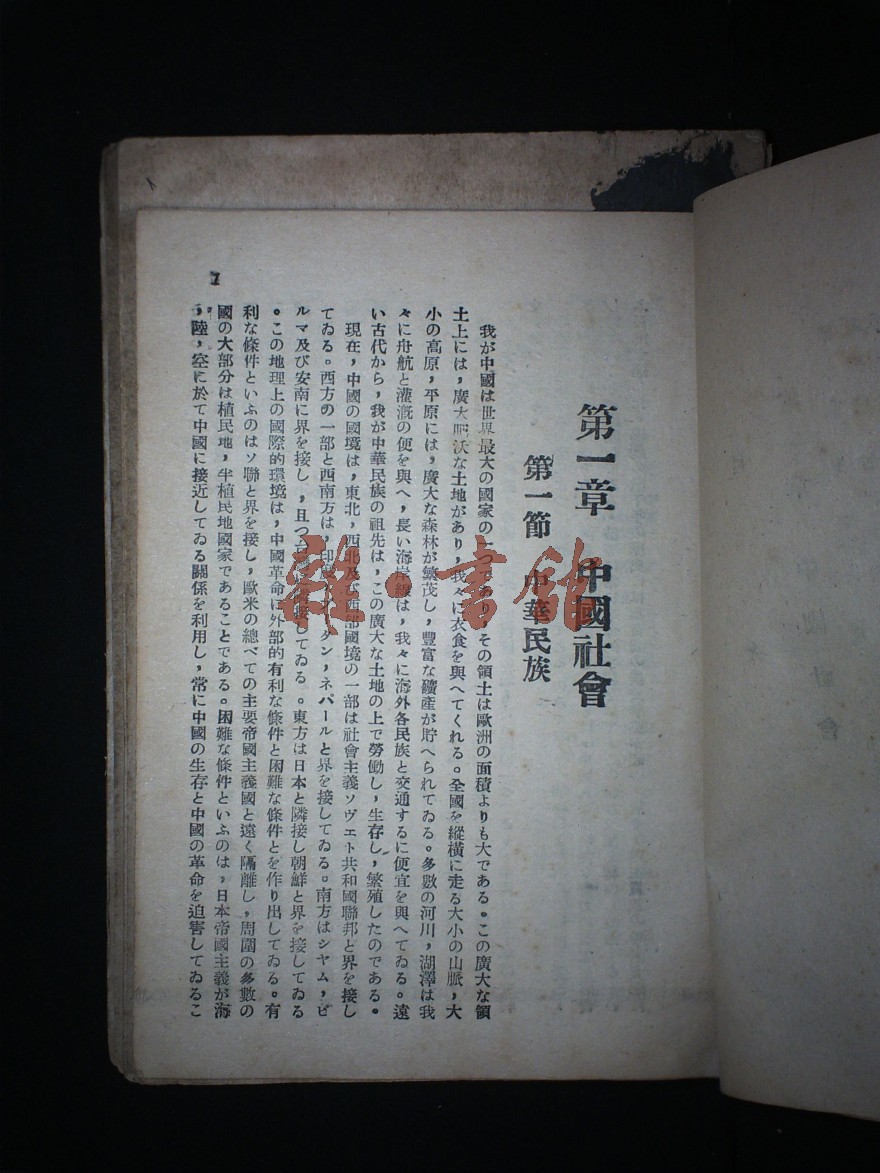 第一章 中國社會
第一節 中華民族
我が中國は世界最大の國家の一つであり，その領土は歐洲の面積よりも大である。この廣大な領
土上には，廣大肥沃な土地があり，我々に衣食を與へてくれる。全國を縱橫に走る大小の山脈，大
小の高原，平原には，廣大な森林が繁茂し，豐富な礦產が貯へられてゐる。多數の河川，湖澤は我
々に舟航と灌漑の便を與へ，長い海岸線は，我々に海外各民族と交通するに便宜を與へてゐる。遠
い古代から，我が中華民族の祖先は，この廣大な土地の上で勞働し，生存し，繁殖したのである。
現在，中國の國境は，東北，西北及び西部國境の一部は社會主義ソヴェト共和國聯邦と界を接し
てゐる。西方の一部と西南方は，印度，ブータン，ネパールと界を接してゐる。南方はシヤム，ビ
ルマ及び安南に界を接し，且つ台灣に接してゐる。東方は日本と隣接し朝鮮と界を接してゐる
。この地理上の國際的環境は，中國革命に外部的有利な條件と困難な條件とを作り出してゐる。有
利な條件といふのはソ聯と界を接し，歐米の總べての主要帝國主義國と遠く隔離し，周圍の多數の
國の大部分は植民地，半植民地國家であることである。困難な條件といふのは，日本帝國主義が海
，陸，空に於て中國に接近してゐる關係を利用し，常に中國の生存と中國の革命を迫害してゐるこ
1
雜·書館